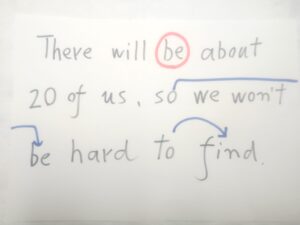 There will be about
20 of us, so we won't
be hard to find.